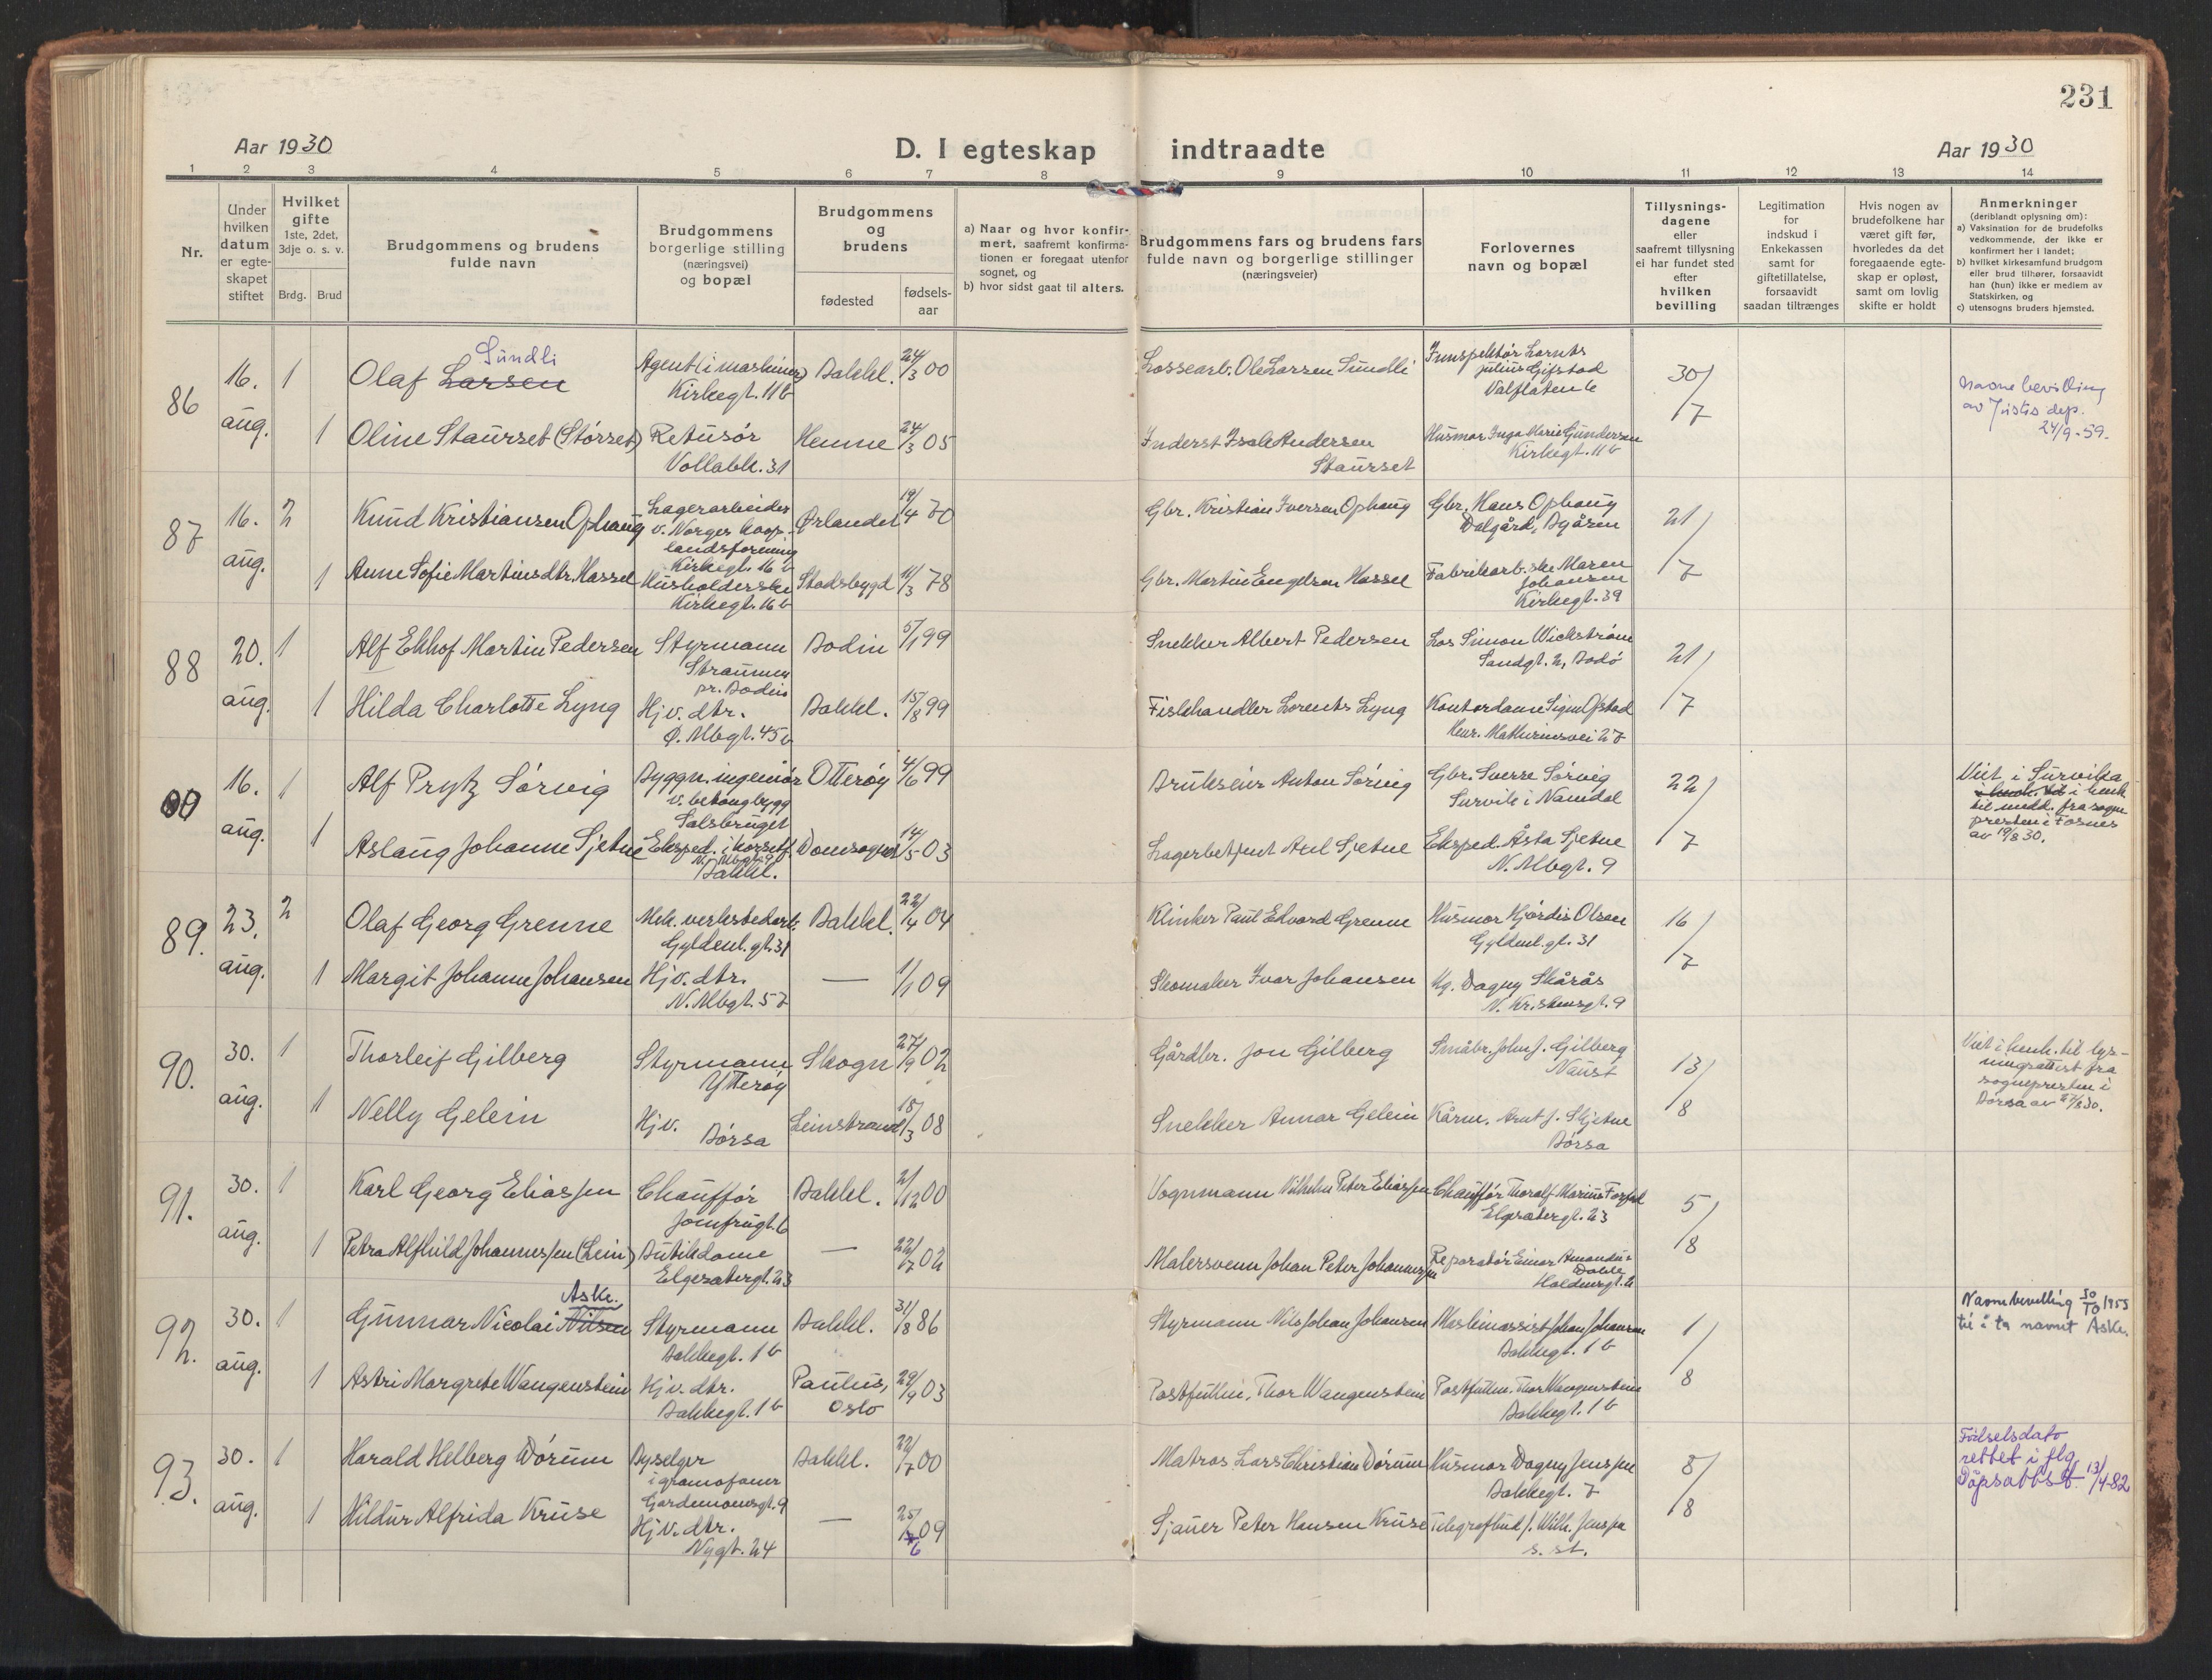 231
Aar 1930
D. I egteskap indtraadte
Aar 1930
1 2 3 4 5 6 7 8 9 10 11 12 13 14
Nr.
Under hvilken datum er egte-skapet stiftet
Hvilket gifte 1ste, 2det, 3dje o. s. v.
Brdg. Brud
Brudgommens og brudens fulde navn
Brudgommens borgerlige stilling (næringsvei) og bopæl
Brudgommens og brudens
fødested
fødsels-aar
a) Naar og hvor konfir-mert, saafremt konfirma-tionen er foregaat utenfor sognet, og
b) hvor sidst gaat til alters.
Brudgommens fars og brudens fars fulde navn og borgerlige stillinger (næringsveier)
Forlovernes navn og bopæl
Tillysnings-dagene eller saafremt tillysning ei har fundet sted efter hvilken bevilling
Legitimation for indskud i Enkekassen samt for giftetillatelse, forsaavidt saadan tiltrænges
Hvis nogen av brudefolkene har været gift før, hvorledes da det foregaaende egte-skap er opløst, samt om lovlig skifte er holdt
Anmerkninger (deriblandt oplysning om):
a) Vaksination for de brudefolks vedkommende, der ikke er konfirmert her i landet;
b) hvilket kirkesamfund brudgom eller brud tilhører, forsaavidt han (hun) ikke er medlem av Statskirken, og
c) utensogns bruders hjemsted.
86 16. aug. 1 Olaf Larsen Sundli
Agent (i maskiner) Kirkegt. 11b
Bakkl. 24/3 00
Lossearb. Ole Larsen Sundli
Innspektør Lornts Julius Gifstad
30/7
Navnebevilling av Justis dep. 24/9-59.
1 Oline Staurset (Størset)
Retusør Vollabk. 31
Hemne 24/3 05
Inderst Isak Andersen Staurset
Husmor Inga Marie Gundersen Kirkegt. 11b
87 16. aug. 2 Knud Kristiansen Ophaug
Lagerarbeider v. Norges koop. landsforening Kirkegt. 16b
Ørlandet 19/4 70
Gbr. Kristian Iversen Ophaug
Gbr. Hans Ophaug Dalgård, Byåsen
21/7
1 Anne Sofie Martinsdtr. Hassel
Husholderske Kirkegt. 16b
Stadsbygd 11/3 78
Gbr. Martin Engelsen Hassel
Fabrikarb.ske Maren Johansen Kirkegt. 39
88 20. aug. 1 Alf Ekhof Martin Pedersen
Styrmann Straumen pr. Bodin
Bodin 5/1 99
Snekker Albert Pedersen
Los Simon Wickstrøm Sandgt. 2, Bodø
21/7
1 Hilda Charlotte Lyng
Hjv. dtr. Ø. Mbgt. 45b
Bakkl. 15/8 99
Fiskhandler Lorents Lyng
Kontordame Signe Opstad Henr. Mathiesensvei 27
16. aug. 1 Alf Prytz Sørvig
Byggn. ingeniør v. betongbygg Salsbruget
Otterøy 4/6 99
Brukseier Anton Sørvig
Gbr. Sverre Sørvig Survik i Namdal
22/7
Viet i Survika i henh. til medd. fra sogne presten i Fosnes av 19/8 30.
1 Aslaug Johanne Sjetne
Eksped. i korsetf. N. Mbgt. 9 Bakkl.
Domsognet 14/5 03
Lagerbetjent Axel Sjetne
Eksped. Åsta Sjetne N. Mbgt. 9
89. 23. aug. 2 Olaf Georg Grenne
Mek. verkstedarb. Gyldenl. gt. 31
Bakkl. 22/4 04
Klinker Paul Edvard Grenne
Husmor Hjørdis Olsen Gyldenl. gt. 31
16/7
1 Margit Johanne Johansen
Hjv. dtr. N. Mbgt. 57
— 1/1 09
Skomaker Ivar Johansen
Hg. Dagny Skårås N. Kristensgt. 9
90. 30. aug. 1 Thorleif Gilberg
Styrmann Ytterøy
Skogn 27/9 02
Gårdbr. Jon Gilberg
Småbr. John J. Gilberg Naust
13/8
Viet i henh. til lys-ningsattest fra sognepresten i Børsa av 27/8 30.
1 Nelly Gelein
Hjv. Børsa
Leinstrand 18/3 08
Snekker Annar Gelein
Kårm. Arnt J. Skjetne Børsa
91. 30. aug. 1 Karl Georg Eliassen
Chauffør Jomfrugt. 6
Bakkl. 2/12 00
Vognmann Vilhelm Peter Eliassen
Chauffør Thoralf Marius Forseth Elgesetergt. 23
5/8
1 Petra Alfhild Johannessen (Lein)
Butikdame Elgesetergt. 23
— 22/7 02
Malersvenn Johan Peter Johannessen
Reparatør Einar Amandus Dahle Haldensgt. 2
92. 30. aug. 1 Gunnar Nicolai Nilsen Aske.
Styrmann Bakkegt. 1b
Bakkl. 31/8 86
Styrmann Nils Johan Johansen
Maskinassist. Johan Johansen Bakkegt. 1b
1/8
Navnebevilling 30/10 1953 til å ta navnet Aske.
1 Astri Margrete Wangenstein
Hjv. dtr. Bakkegt. 1b
Paulus, Oslo 29/9 03
Postfullm. Thor Wangenstein
Postfullm. Thor Wangenstein Bakkegt. 1b
93. 30. aug. 1 Harald Helberg Dørum
Byselger i gramofoner Gardemoensgt. 9
Bakkl. 22/7 00
Matros Lars Christian Dørum
Husmor Dagny Jenssen Bakkegt. 7
8/8
Fødselsdato rettet i flg. Dåpsattest 13/4-82
1 Hildur Alfrida Kruse
Hjv. dtr. Nygt. 24
— 25/6 09
Sjauer Peter Hansen Kruse
Telegrafbud J. Wilh. Jenssen s. st.